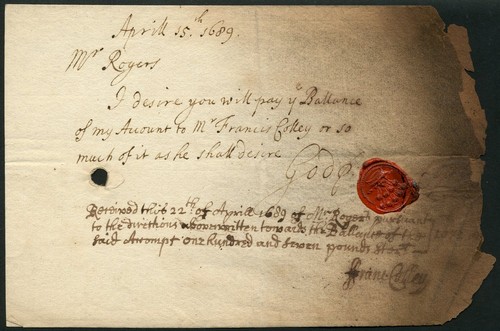 Aprill 15.th 1689.
Mr Rogers
I desire you will pay ye Ballance
of my Acount to Mr Francis Colley or so
much of it as he shall desire
Godo
Received this 22th of Aprill 1689 of Mr Rogers pursuant
to the directions abovewritten towards the Ballance of the
said Accompt one hundred and seven pounds
ffran: Colley